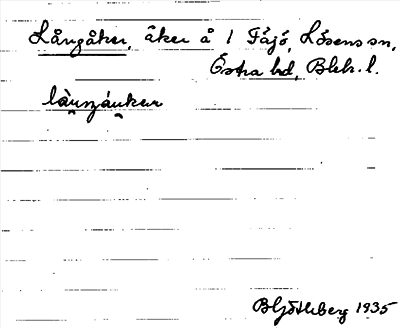 Långåker, åker å 1 Fäjö, Lösens sn,
Östra hd, Blek. l.
làunzáuker
B Götlberg 1935